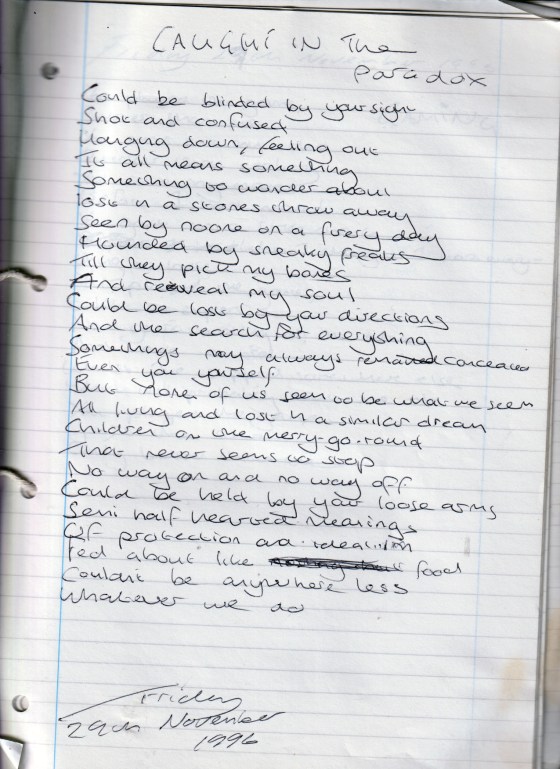 CAUGHT IN The
paradox
Could be blinded by your sign
Shot and confused
Hanging down, feeling out
It all means something
Something to wonder about
lost in a stones throw away
Seen by noone on a firery day
Hounded by sneaky freaks
Till they pick my bones
And reveal my soul
Could be lost by your directions
And the search for everything
Somethings may always remained concealed
Even you yourself
But None of us seem to be what we seem
All living and lost in a similar dream
Children on the merry-go-round
That never seems to stop
No way on and no way off
Could be held by your loose arms
Semi half hearted meanings
Of protection and idealism
Fed about like food
Couldn't be anywhere less
Whatever we do
Friday
29th November
1996